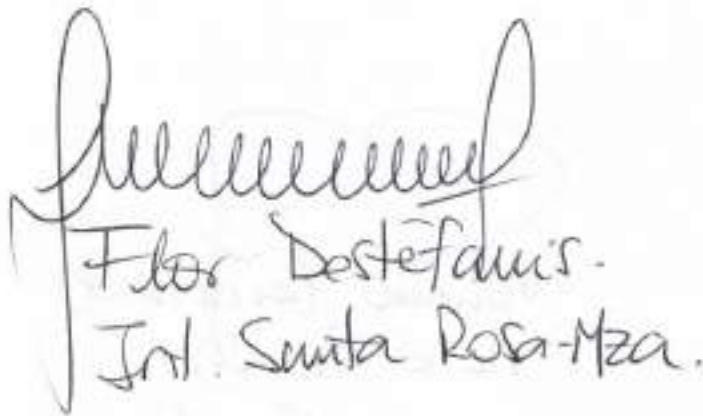 Flor Destéfanis.
Int. Santa Rosa-Mza.